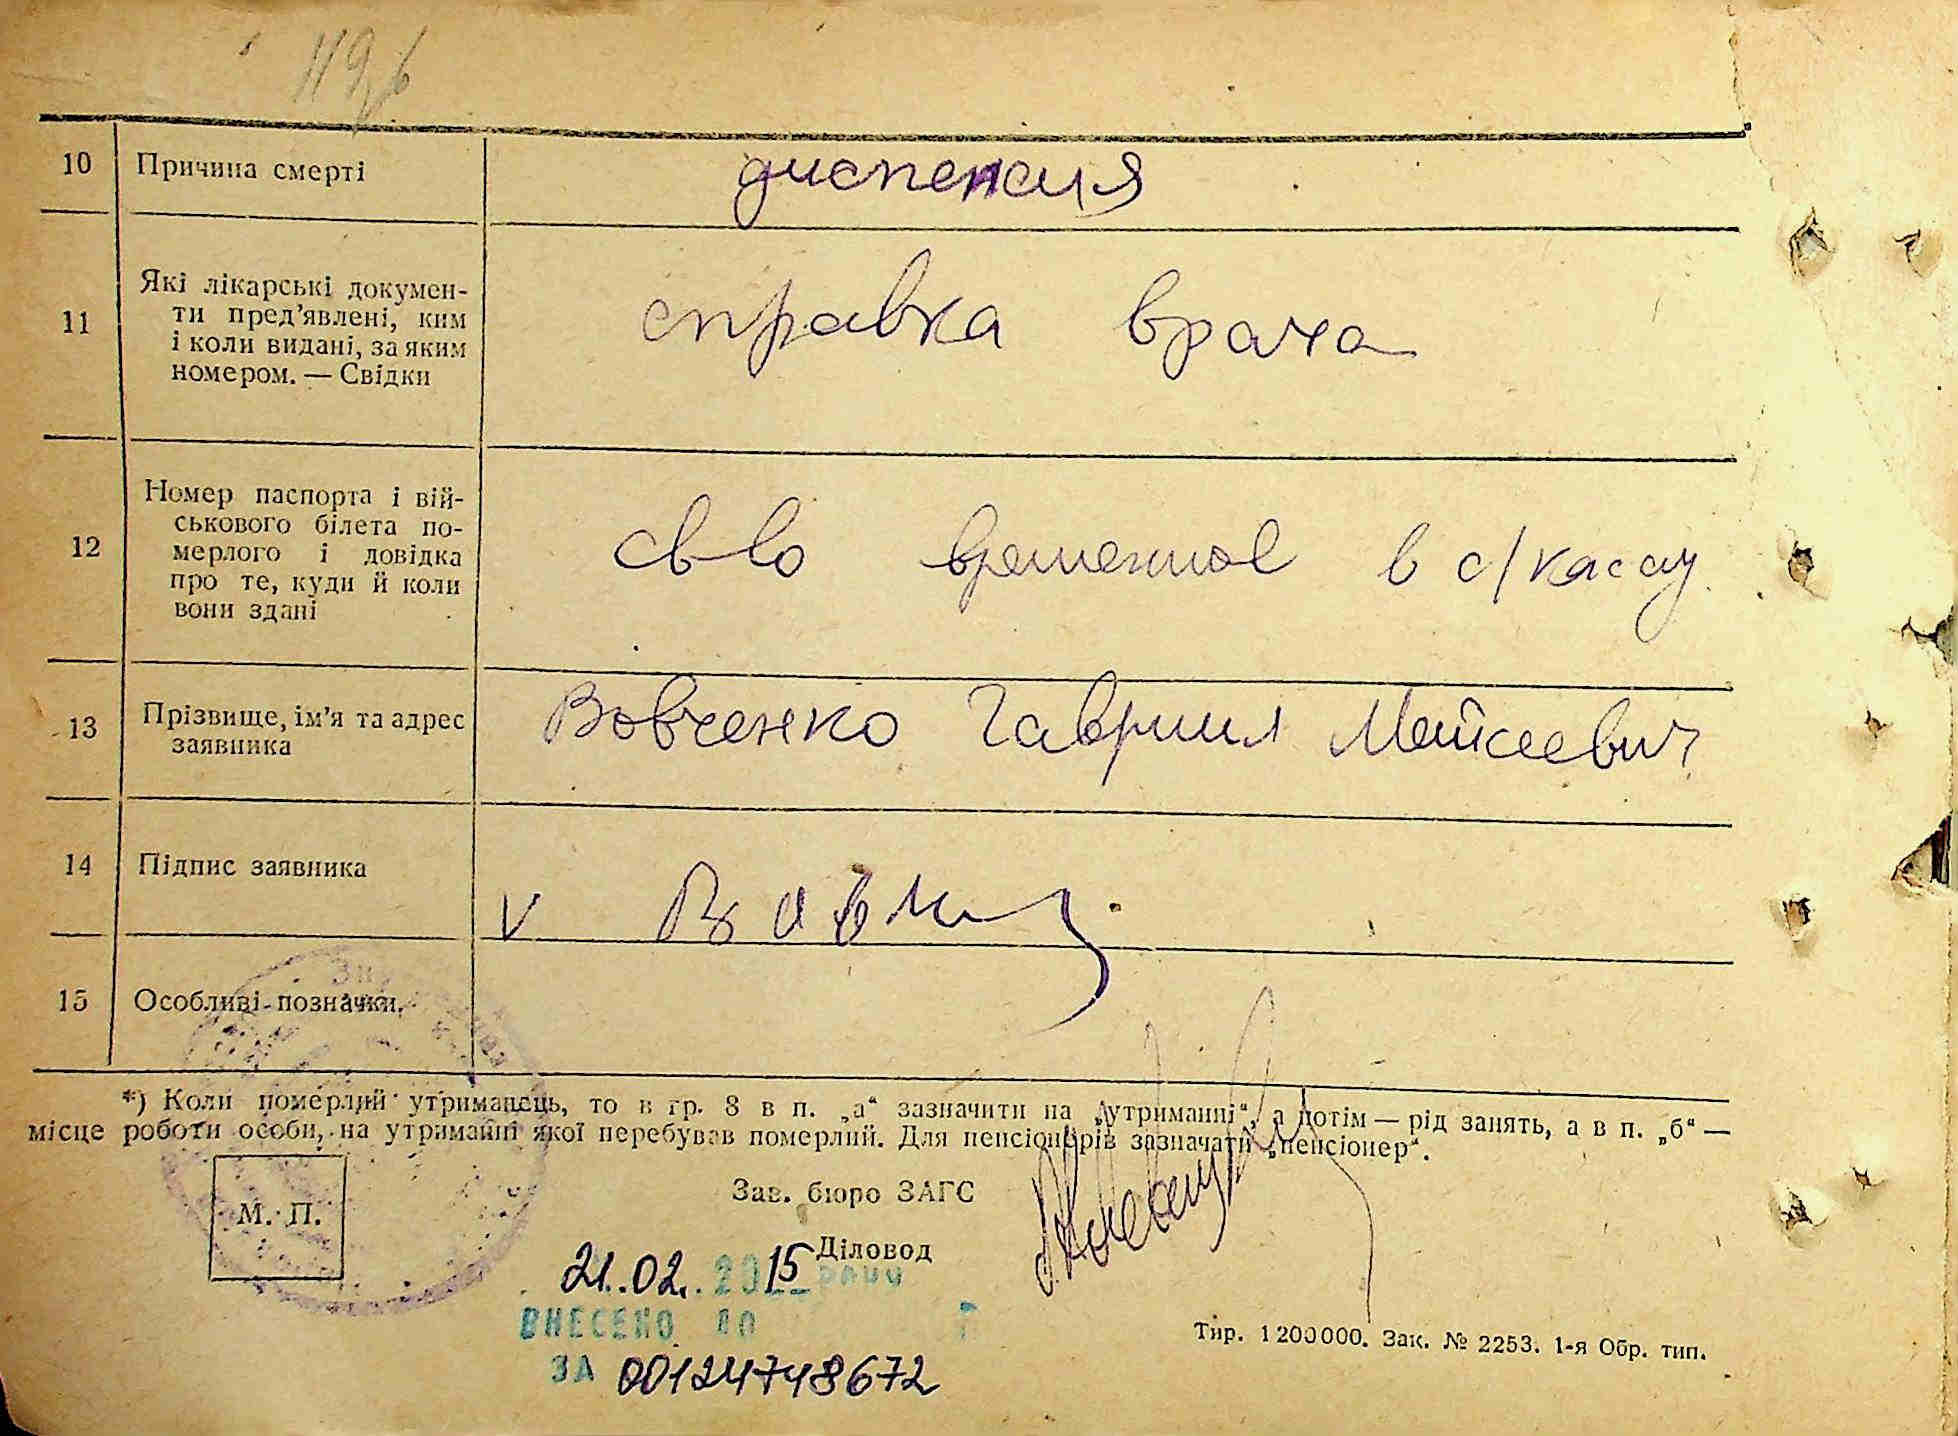 10 Причина смерті диспепсия
11 Які лікарські докумен-
ти пред’явлені, ким
і коли видані, за яким
номером. — Свідки
справка врача
12 Номер паспорта і вій-
ськового білета по-
мерлого і довідка
про те, куди й коли
вони здані
св-во временное в с/кассу
13 Прізвище, ім’я та адрес
заявника
Вовченко Гавриил Мойсеевич
14 Підпис заявника
V
15 Особливі позначки.
*) Коли померлий утриманець, то в гр. 8 в п. „а“ зазначити на „утриманні“, а потім — рід занять, а в п. „б“ —
місце роботи особи, на утриманні якої перебував померлий. Для пенсіонерів зазначати „пенсіонер“.
М. П.
Зав. бюро ЗАГС
Діловод
21.02.2015 року
ВНЕСЕНО ДО
ЗА 00124748672
Тир. 1200000. Зак. № 2253. 1-я Обр. тип.